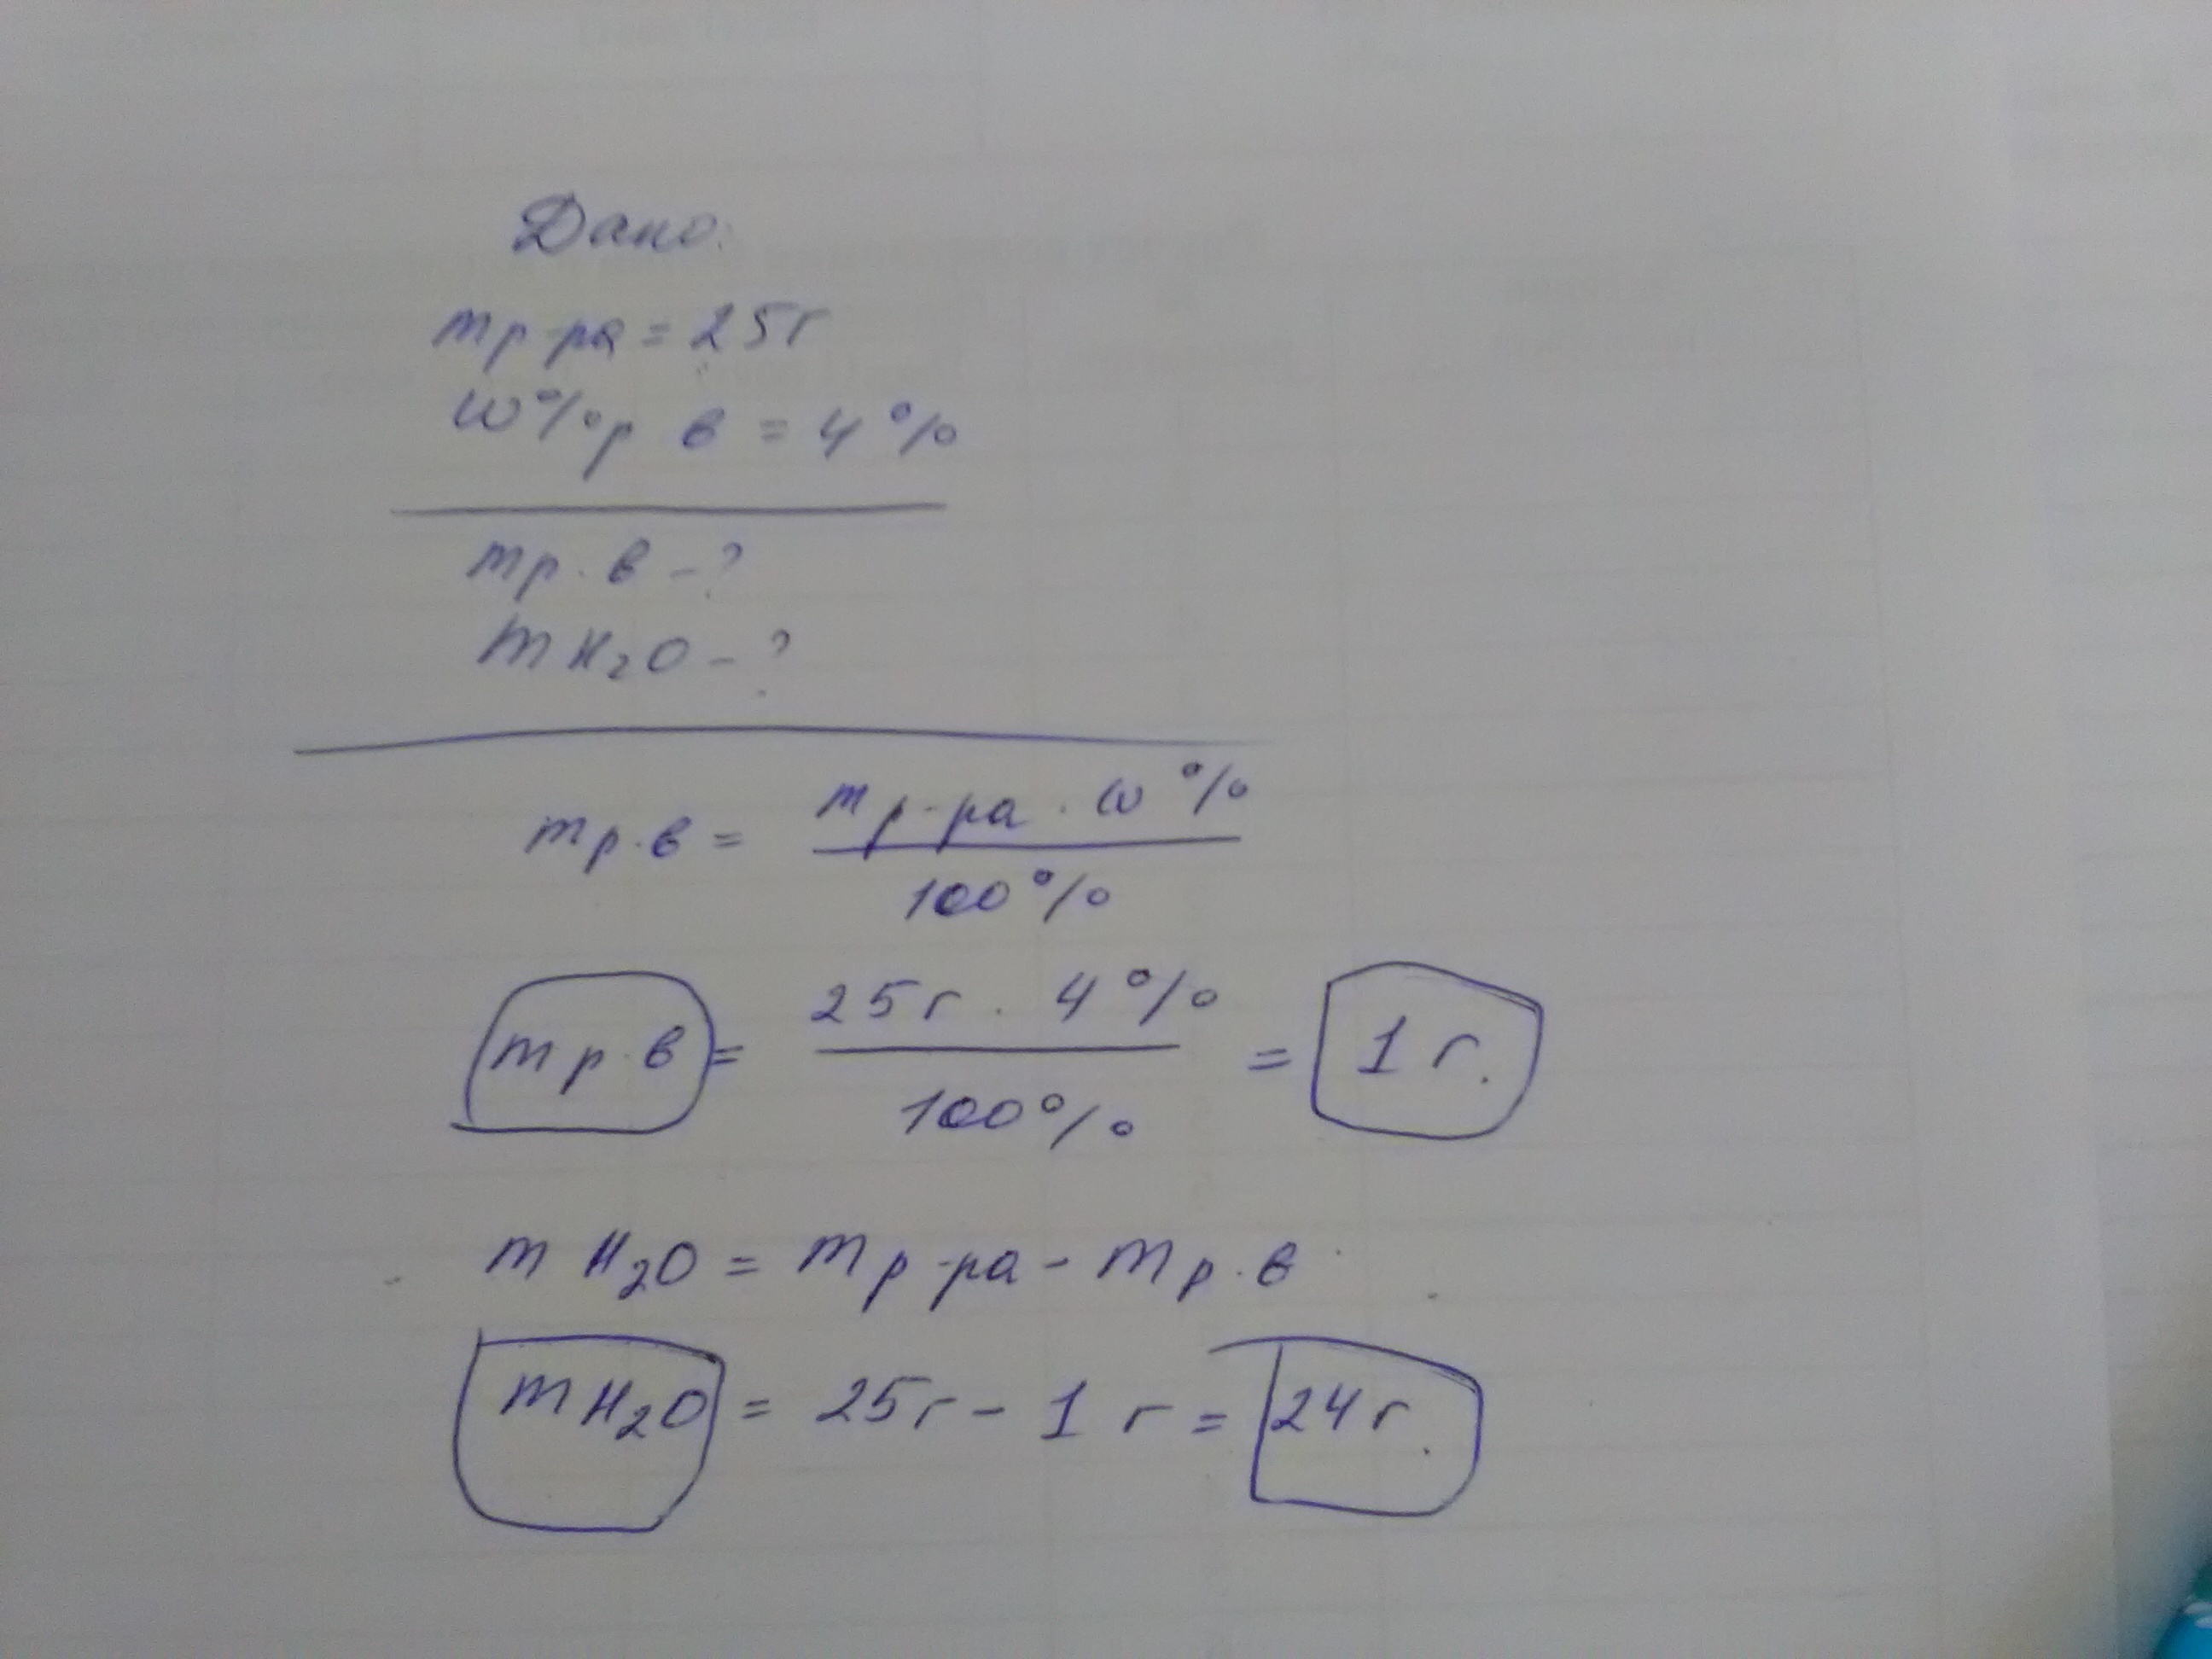 Дано:
mр-ра = 25г
W%р в = 4%
mр.в - ?
mH₂O - ?
mр.в = mр-ра · W% / 100%
mр.в = 25г · 4% / 100% = 1 г.
m H₂O = mр-ра - mр.в
mH₂O = 25г - 1 г = 24 г.